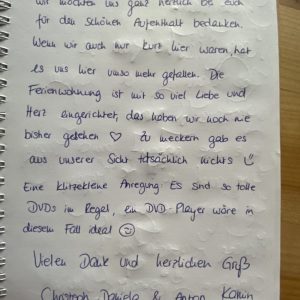 wir möchten uns ganz herzlich bei euch
für den schönen Aufenthalt bedanken.
Wenn wir auch nur kurz hier waren, hat
es uns hier umso mehr gefallen. Die
Ferienwohnung ist mit so viel Liebe und
Herz eingerichtet, das haben wir noch nie
bisher gesehen ♡ Zu meckern gab es
aus unserer Sicht tatsächlich nichts ☺
Eine klitzekleine Anregung: Es sind so tolle
DVDs im Regal, ein DVD-Player wäre in
diesem Fall ideal ☺
Vielen Dank und herzlichen Gruß
Christoph, Daniela & Anton